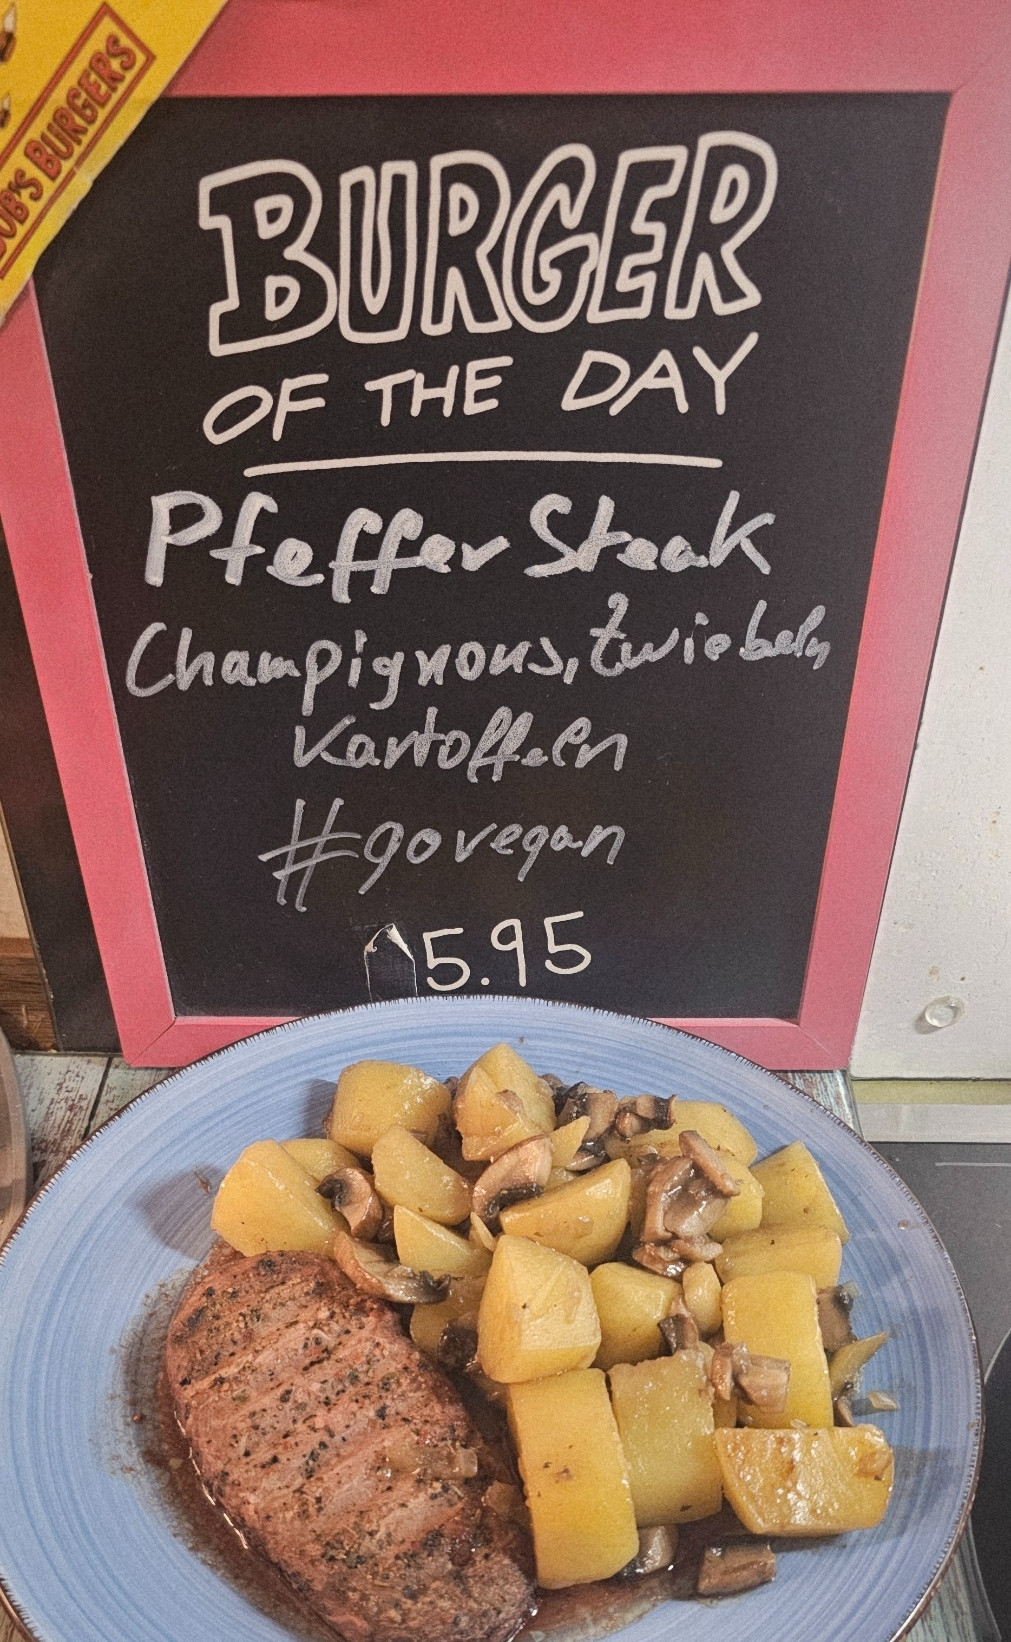 BOB'S BURGERS
BURGER
OF THE DAY
Pfeffer Steak
Champignons, Zwiebeln
Kartoffeln
#govegan
5.95